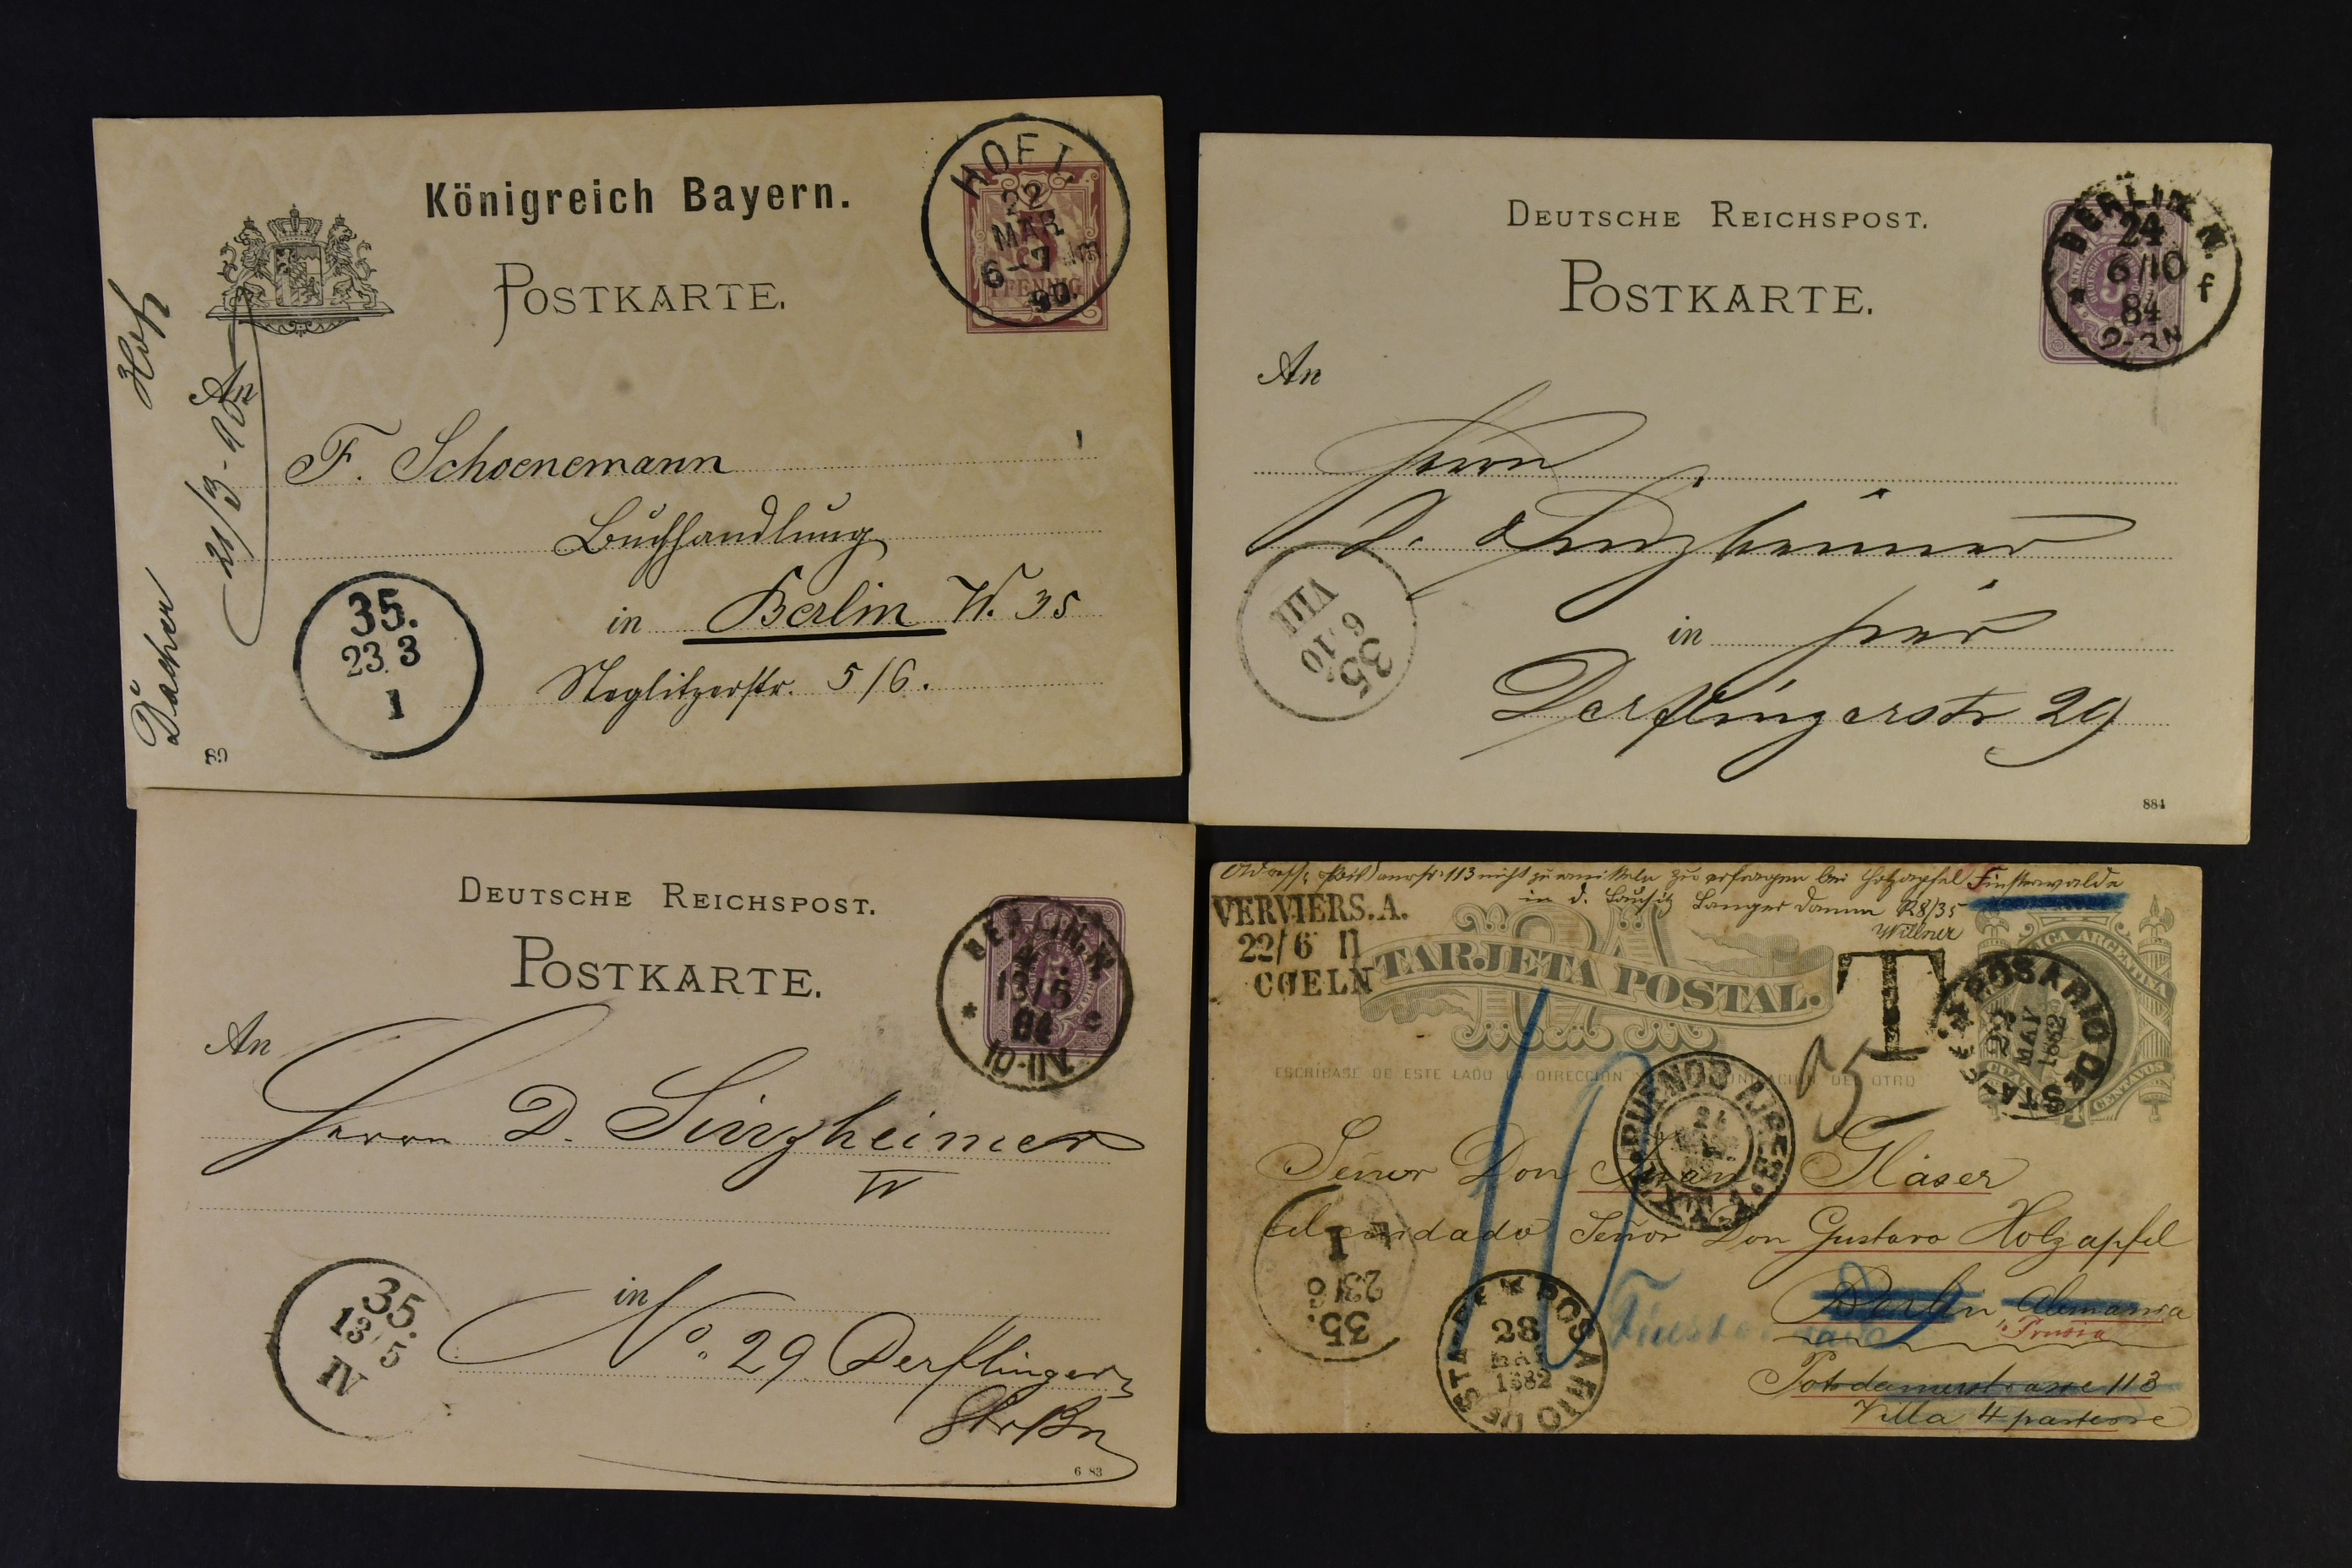 Königreich Bayern.
POSTKARTE.
HOF I.
22
MAR
6-7
90.
PFENNIG
Hof
21/3.90
Dacher
An
F. Schoenemann
Buchhandlung
in Berlin W. 35
Steglitzerstr. 5/6.
35.
23.3
1
89
DEUTSCHE REICHSPOST.
POSTKARTE.
BERLIN N.
24
6/10
84
2-3N
* f
An
Herrn
D. Sinzheimer
in hier
Derflingerstr 29
35
6/10
VIII
884
DEUTSCHE REICHSPOST.
POSTKARTE.
BERLIN, N.
13/5
84
10-11V.
* c
An
Herrn D. Sinzheimer
W
in
No. 29 Derflinger
35.
13/5
IV
6 83
113 nicht zu ermitteln zu erfragen bei Holzapfel Finsterwalde
in d. Lausitz Langer Damm R8/35
VERVIERS.A.
22/6 II
COELN
TARJETA POSTAL.
T
ROSARIO DE STA FE
29
MAY
1882
CENTAVOS
ESCRIBASE DE ESTE LADO LA DIRECCION DEL OTRO
BUENOS AIRES
Señor Don Juan Gläser
al cuidado Señor Don Gustavo Holzapfel
Berlin, Alemania
Prusia
Potsdamerstrasse 113
Villa 4 parterre
35.
23/6
I
ROSARIO DE STA FE
28
MAY
1882